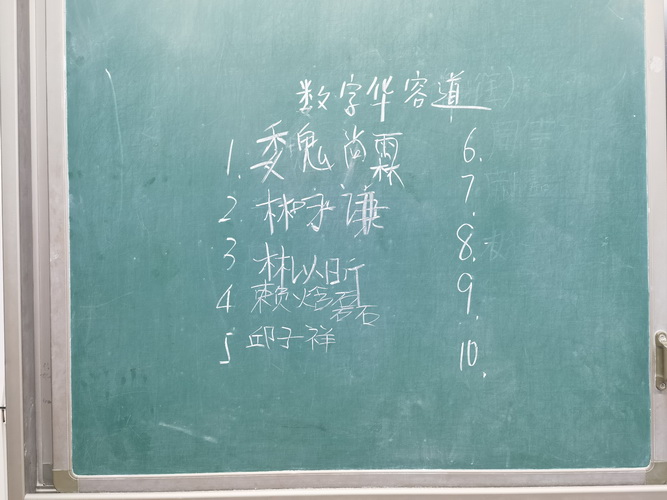 数字华容道
1. 魏尚霖
2. 林子谦
3 林以昕
4 赖焓磊
5 邱子祥
6.
7.
8.
9.
10.